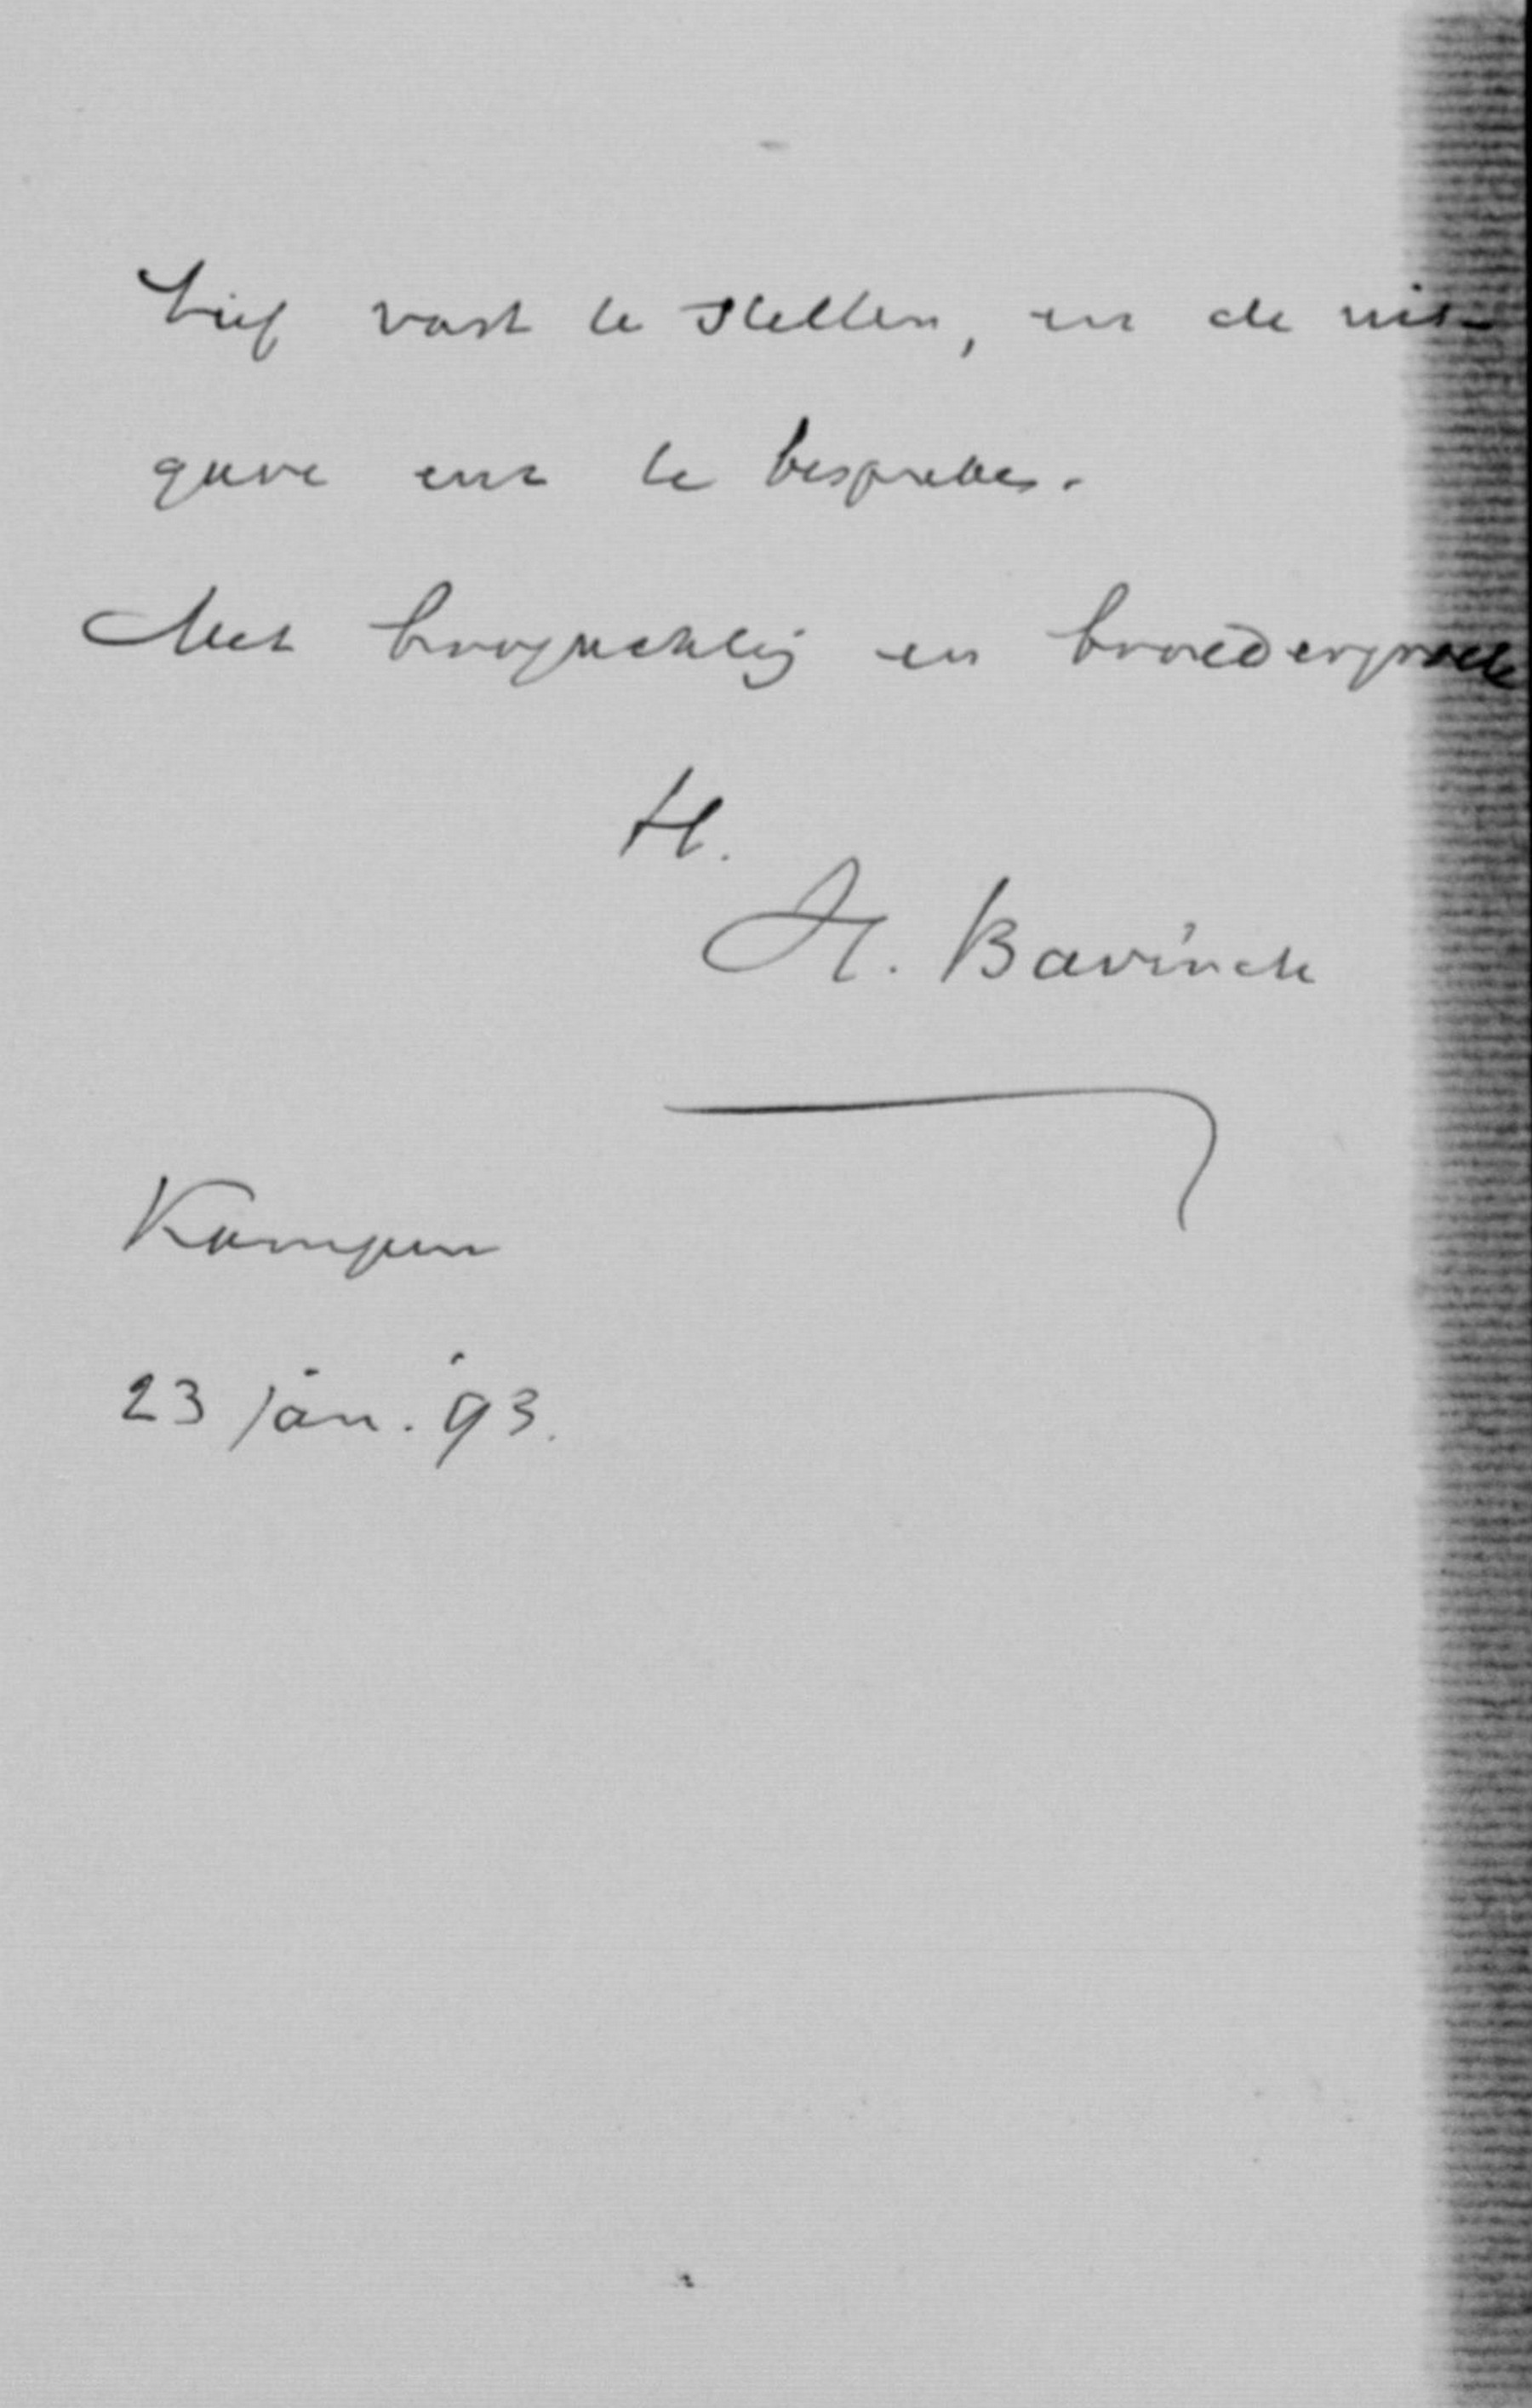 tief vast te stellen, en de uit-
gave enz te bespreken.
Met hoogachting en broedergroete
H.
H. Bavinck
Kampen
23 jan. '93.